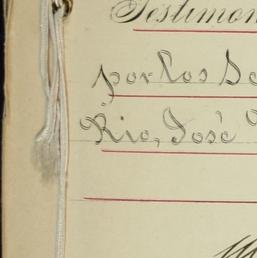 Testimon
por los Se
Rio, José